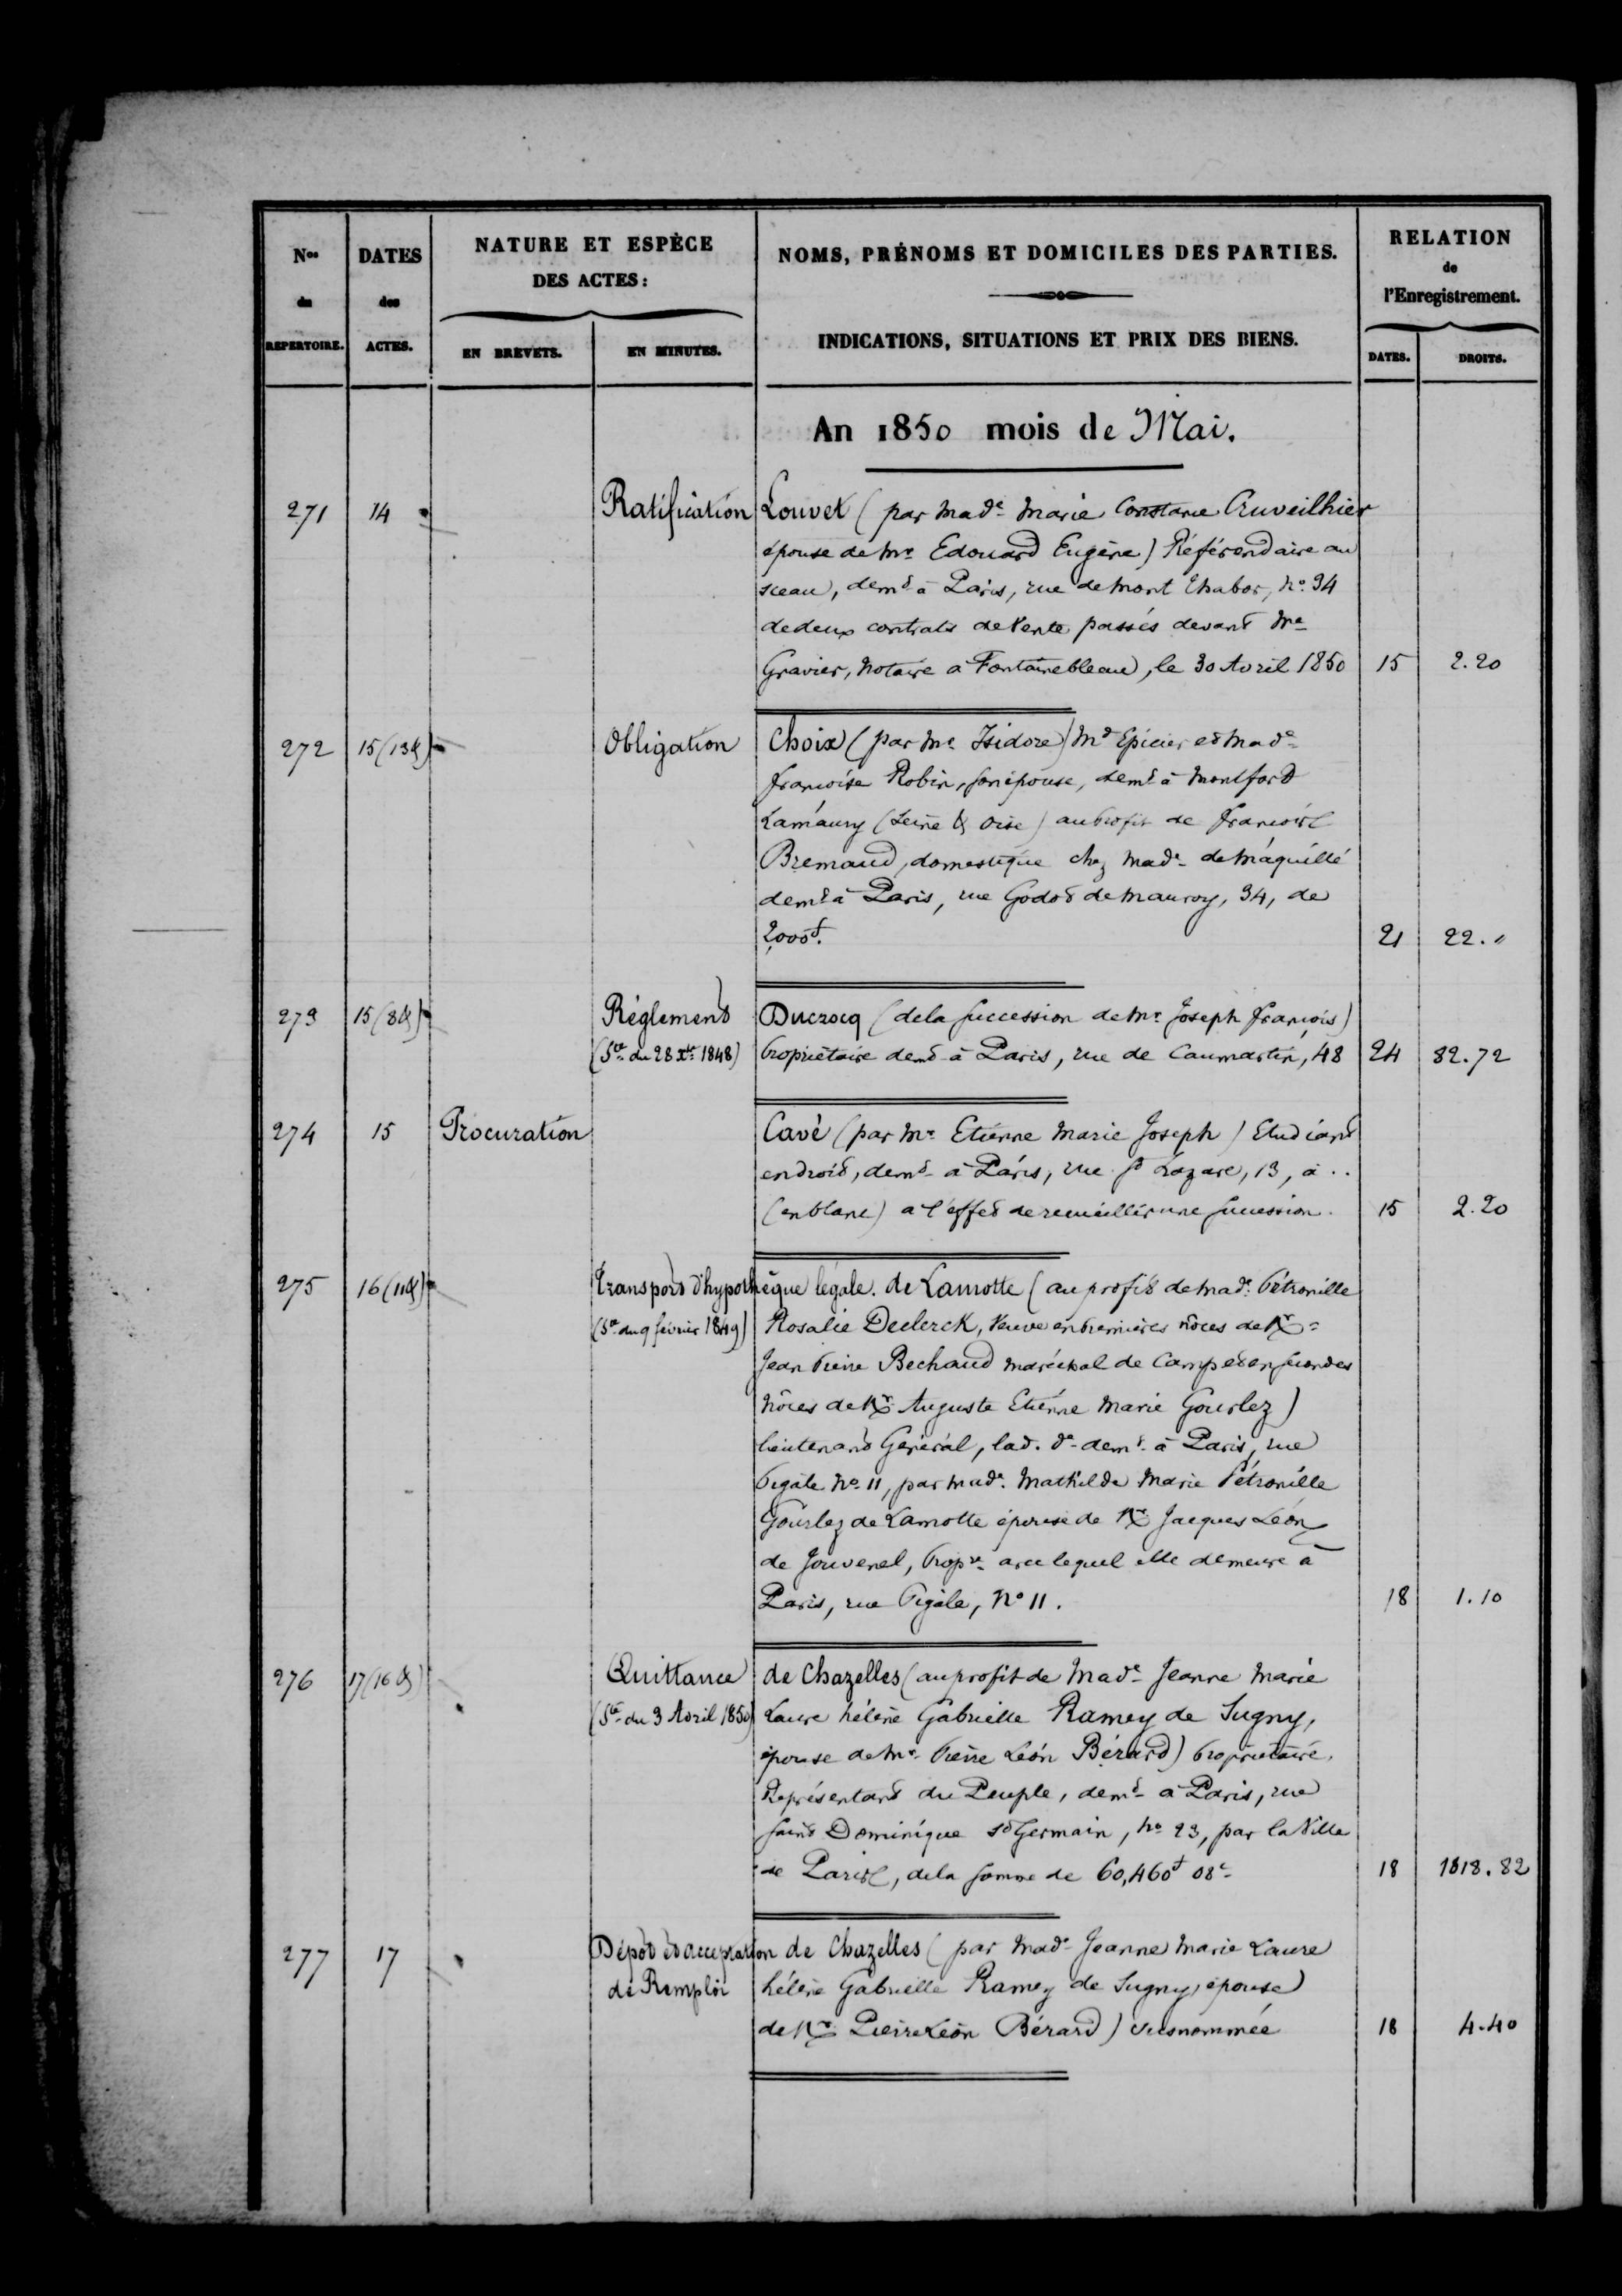 Nos
du
REPERTOIRE.
DATES
des
ACTES.
NATURE ET ESPÈCE
DES ACTES:
EN BREVETS.
EN MINUTES.
NOMS, PRÉNOMS ET DOMICILES DES PARTIES.
INDICATIONS, SITUATIONS ET PRIX DES BIENS.
RELATION
de
l'Enregistrement.
DATES.
DROITS.
An 1850 mois de Mai.
271 14 Ratification Louvet (par Made Marie Constance Cruveilhier
épouse de Mr Edouard Eugène) Référendaire au
sceau, demt à Paris, rue de Mont Thabor, No. 34
de deux contrats de Vente passés devant Me
Gravier, Notaire à Fontainebleau, le 30 Avril 1850 15 2.20
272 15 (13&) Obligation Choix (par Mr Isidore) Md Epicier et Made
françoise Robin, son épouse, demt à Montfort
Lamaury (Seine & Oise) au profit de françoise
Bremaud, domestique chez Made de Maquillé
demt à Paris, rue Godot de Mauroy, 34, de
2,000f. 21 22. "
273 15 (8&) Réglement Ducrocq (de la succession de Mr Joseph françois)
(Ste du 28 Xbre 1848) Propriétaire demt à Paris, rue de Caumartin, 48 24 82.72
274 15 Procuration Cavé (par Mr Etienne Marie Joseph) Etudiant
en droit, demt à Paris, rue St Lazare, 13, à ..
(en blanc) à l'effet de recueillir une succession. 15 2.20
275 16 (11&) Transport d'hypothèque légale. de Lamotte (au profit de Made Pétronille
(Ste du 9 février 1849) Rosalie Declerck, Veuve en premières nôces de Mr
Jean Pierre Bechaud maréchal de Camp et en secondes
nôces de Mr Auguste Etienne Marie Gourlez)
lieutenant Général, lad. de demt à Paris, rue
Pigale No 11, par Made Mathilde Marie Pétronille
Gourlez de Lamotte épouse de Mr Jacques Léon
de Jouvenel, Propre avec lequel elle demeure à
Paris, rue Pigale, No 11. 18 1.10
276 17 (16&) Quittance de Chazelles (au profit de Made Jeanne Marie
(Ste du 3 Avril 1850) Laure hélène Gabrielle Ramey de Sugny,
épouse de Mr Pierre Léon Bérard) Propriétaire,
Représentant du Peuple, demt à Paris, rue
saint Dominique St Germain, No 23, par la Ville
de Paris, de la somme de 60,460f 08c 18 1818.82
277 17 Dépôt et acceptation de Chazelles (par Made Jeanne Marie Laure
de Remploi hélène Gabrielle Ramey de Sugny, épouse
de Mr Pierre Léon Bérard) susnommée 18 4.40